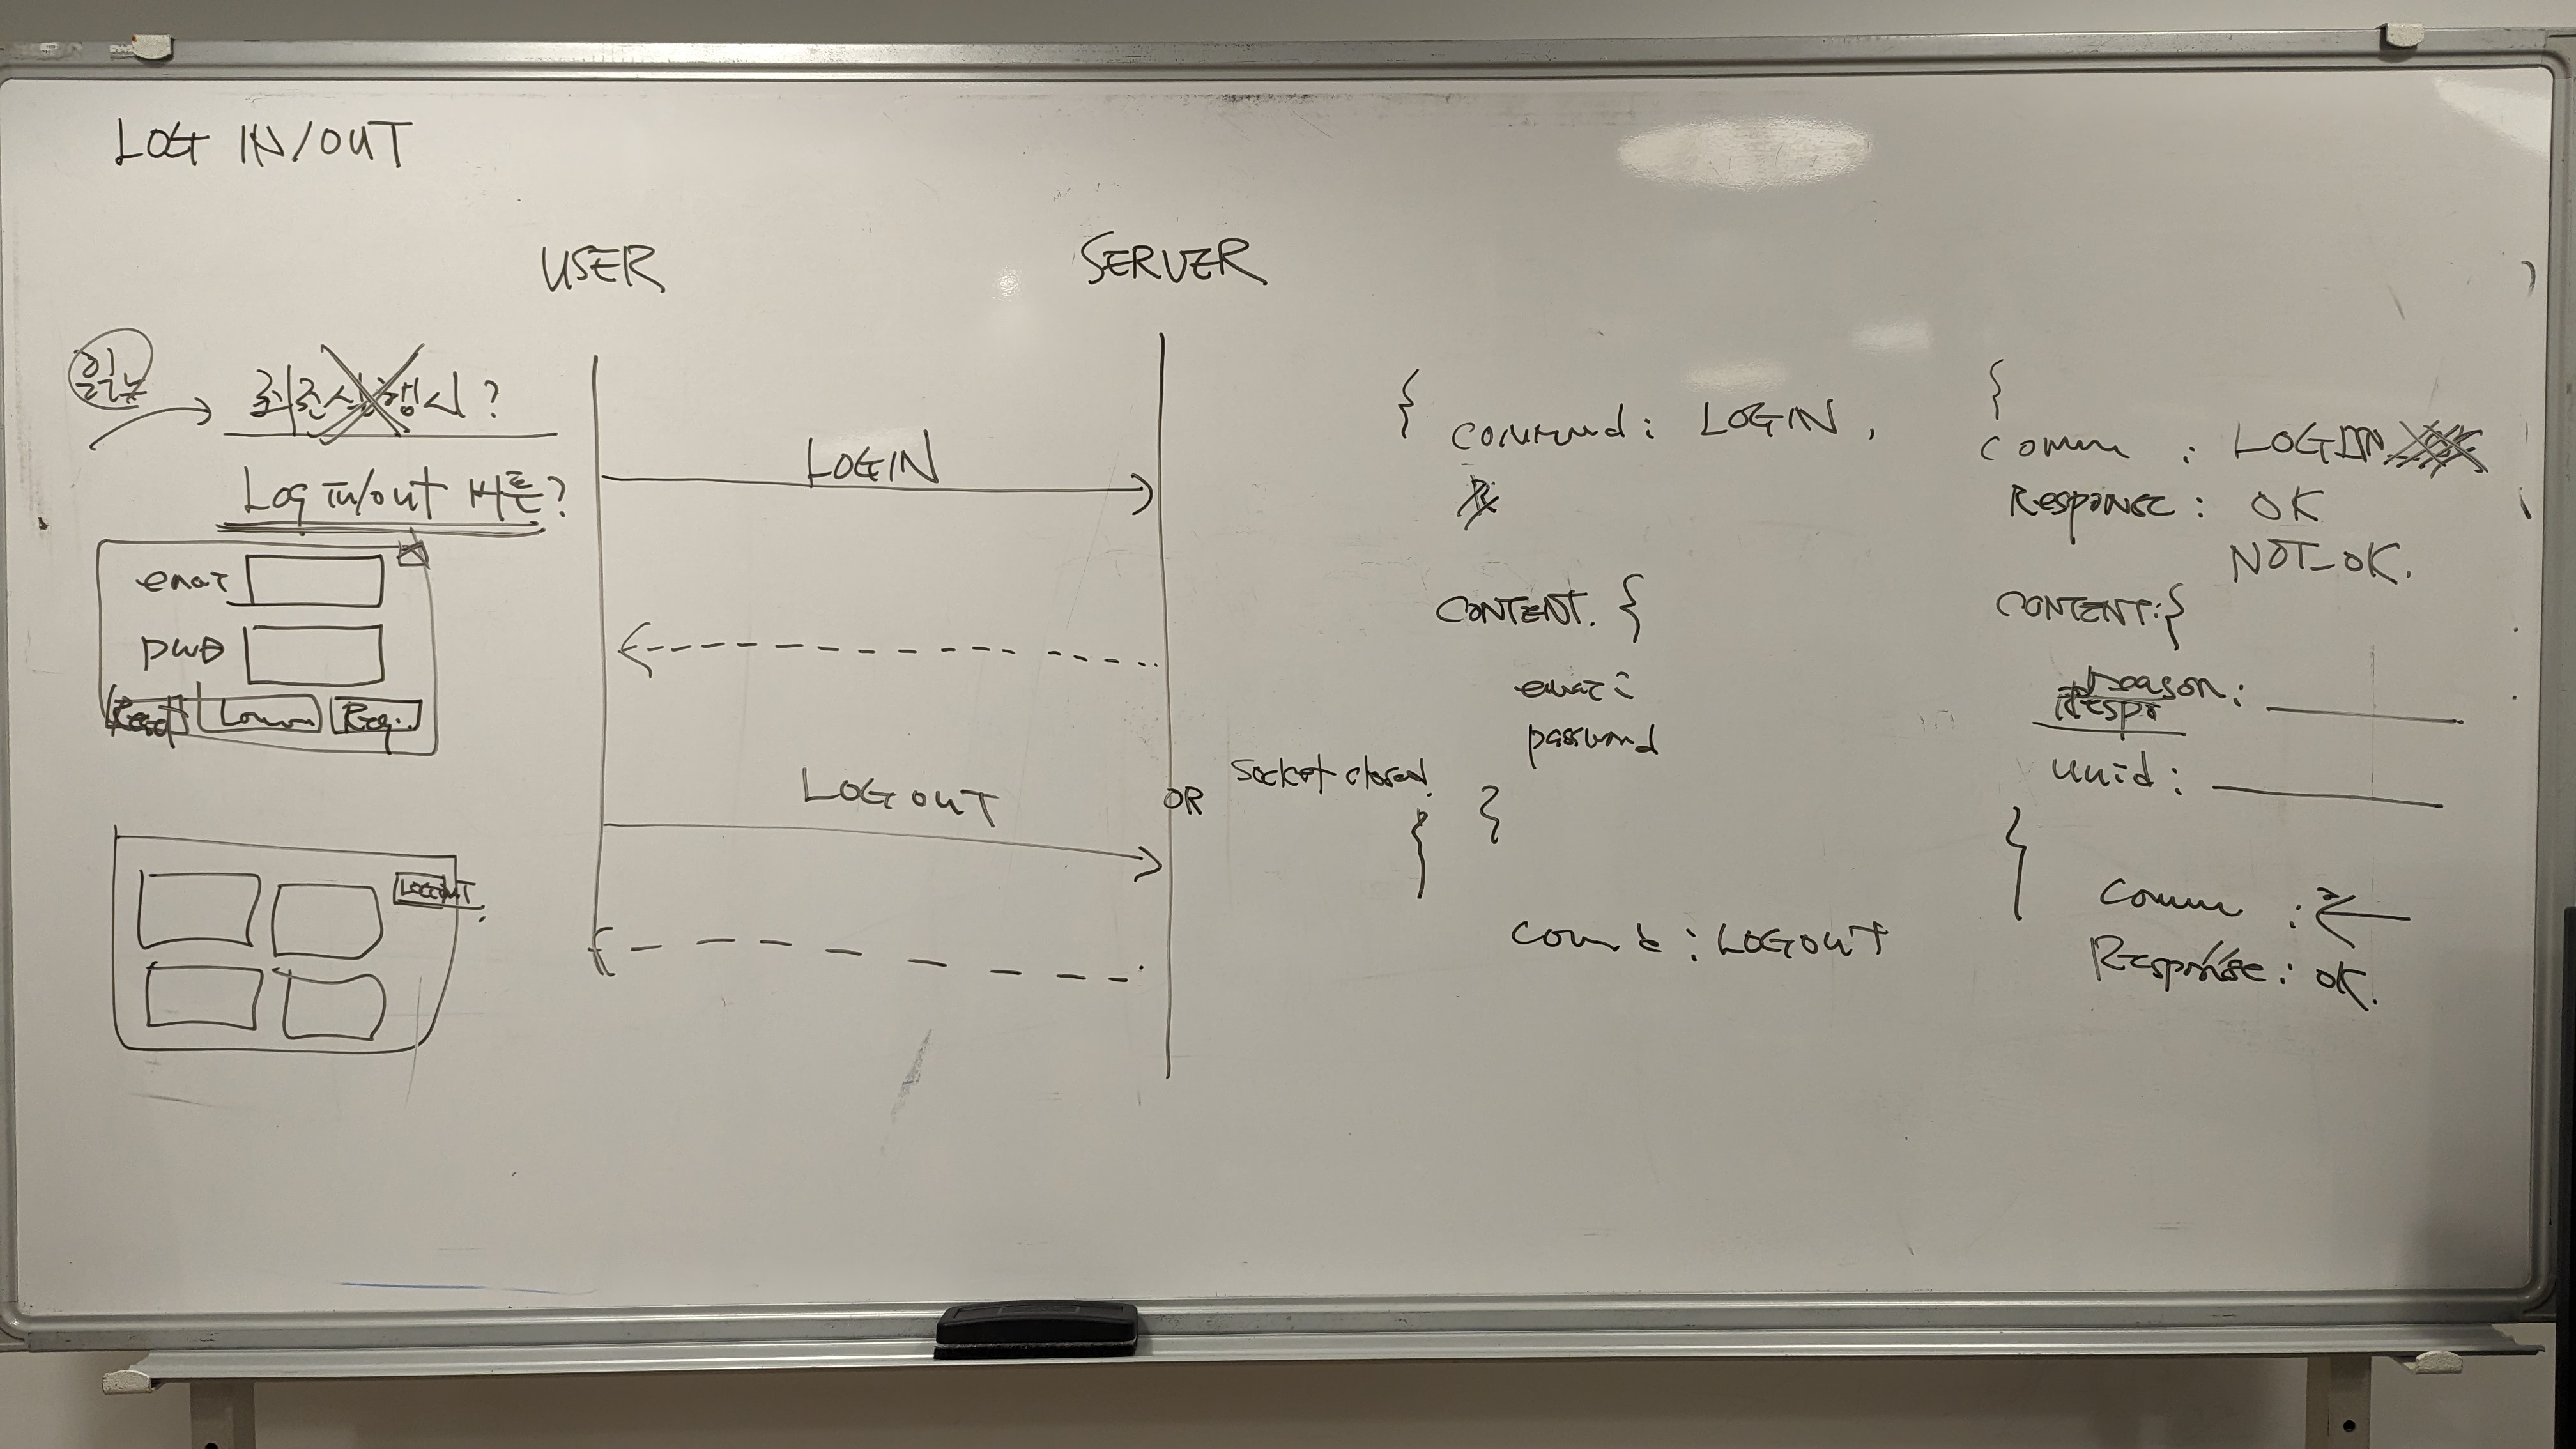 LOG IN/OUT
USER
SERVER
최초실행시?
Log in/out 버튼?
LOGIN
email
PWD
Reset
Login
Req.
LOGOUT
OR
Socket closed.
LOGOUT
{
command: LOGIN,
CONTENT. {
email:
password
}
{
: LOGOUT
{
Comm : LOGIN
Response: OK
NOT_OK.
CONTENT:{
Reason:
uuid:
}
Comm :
Response: OK.